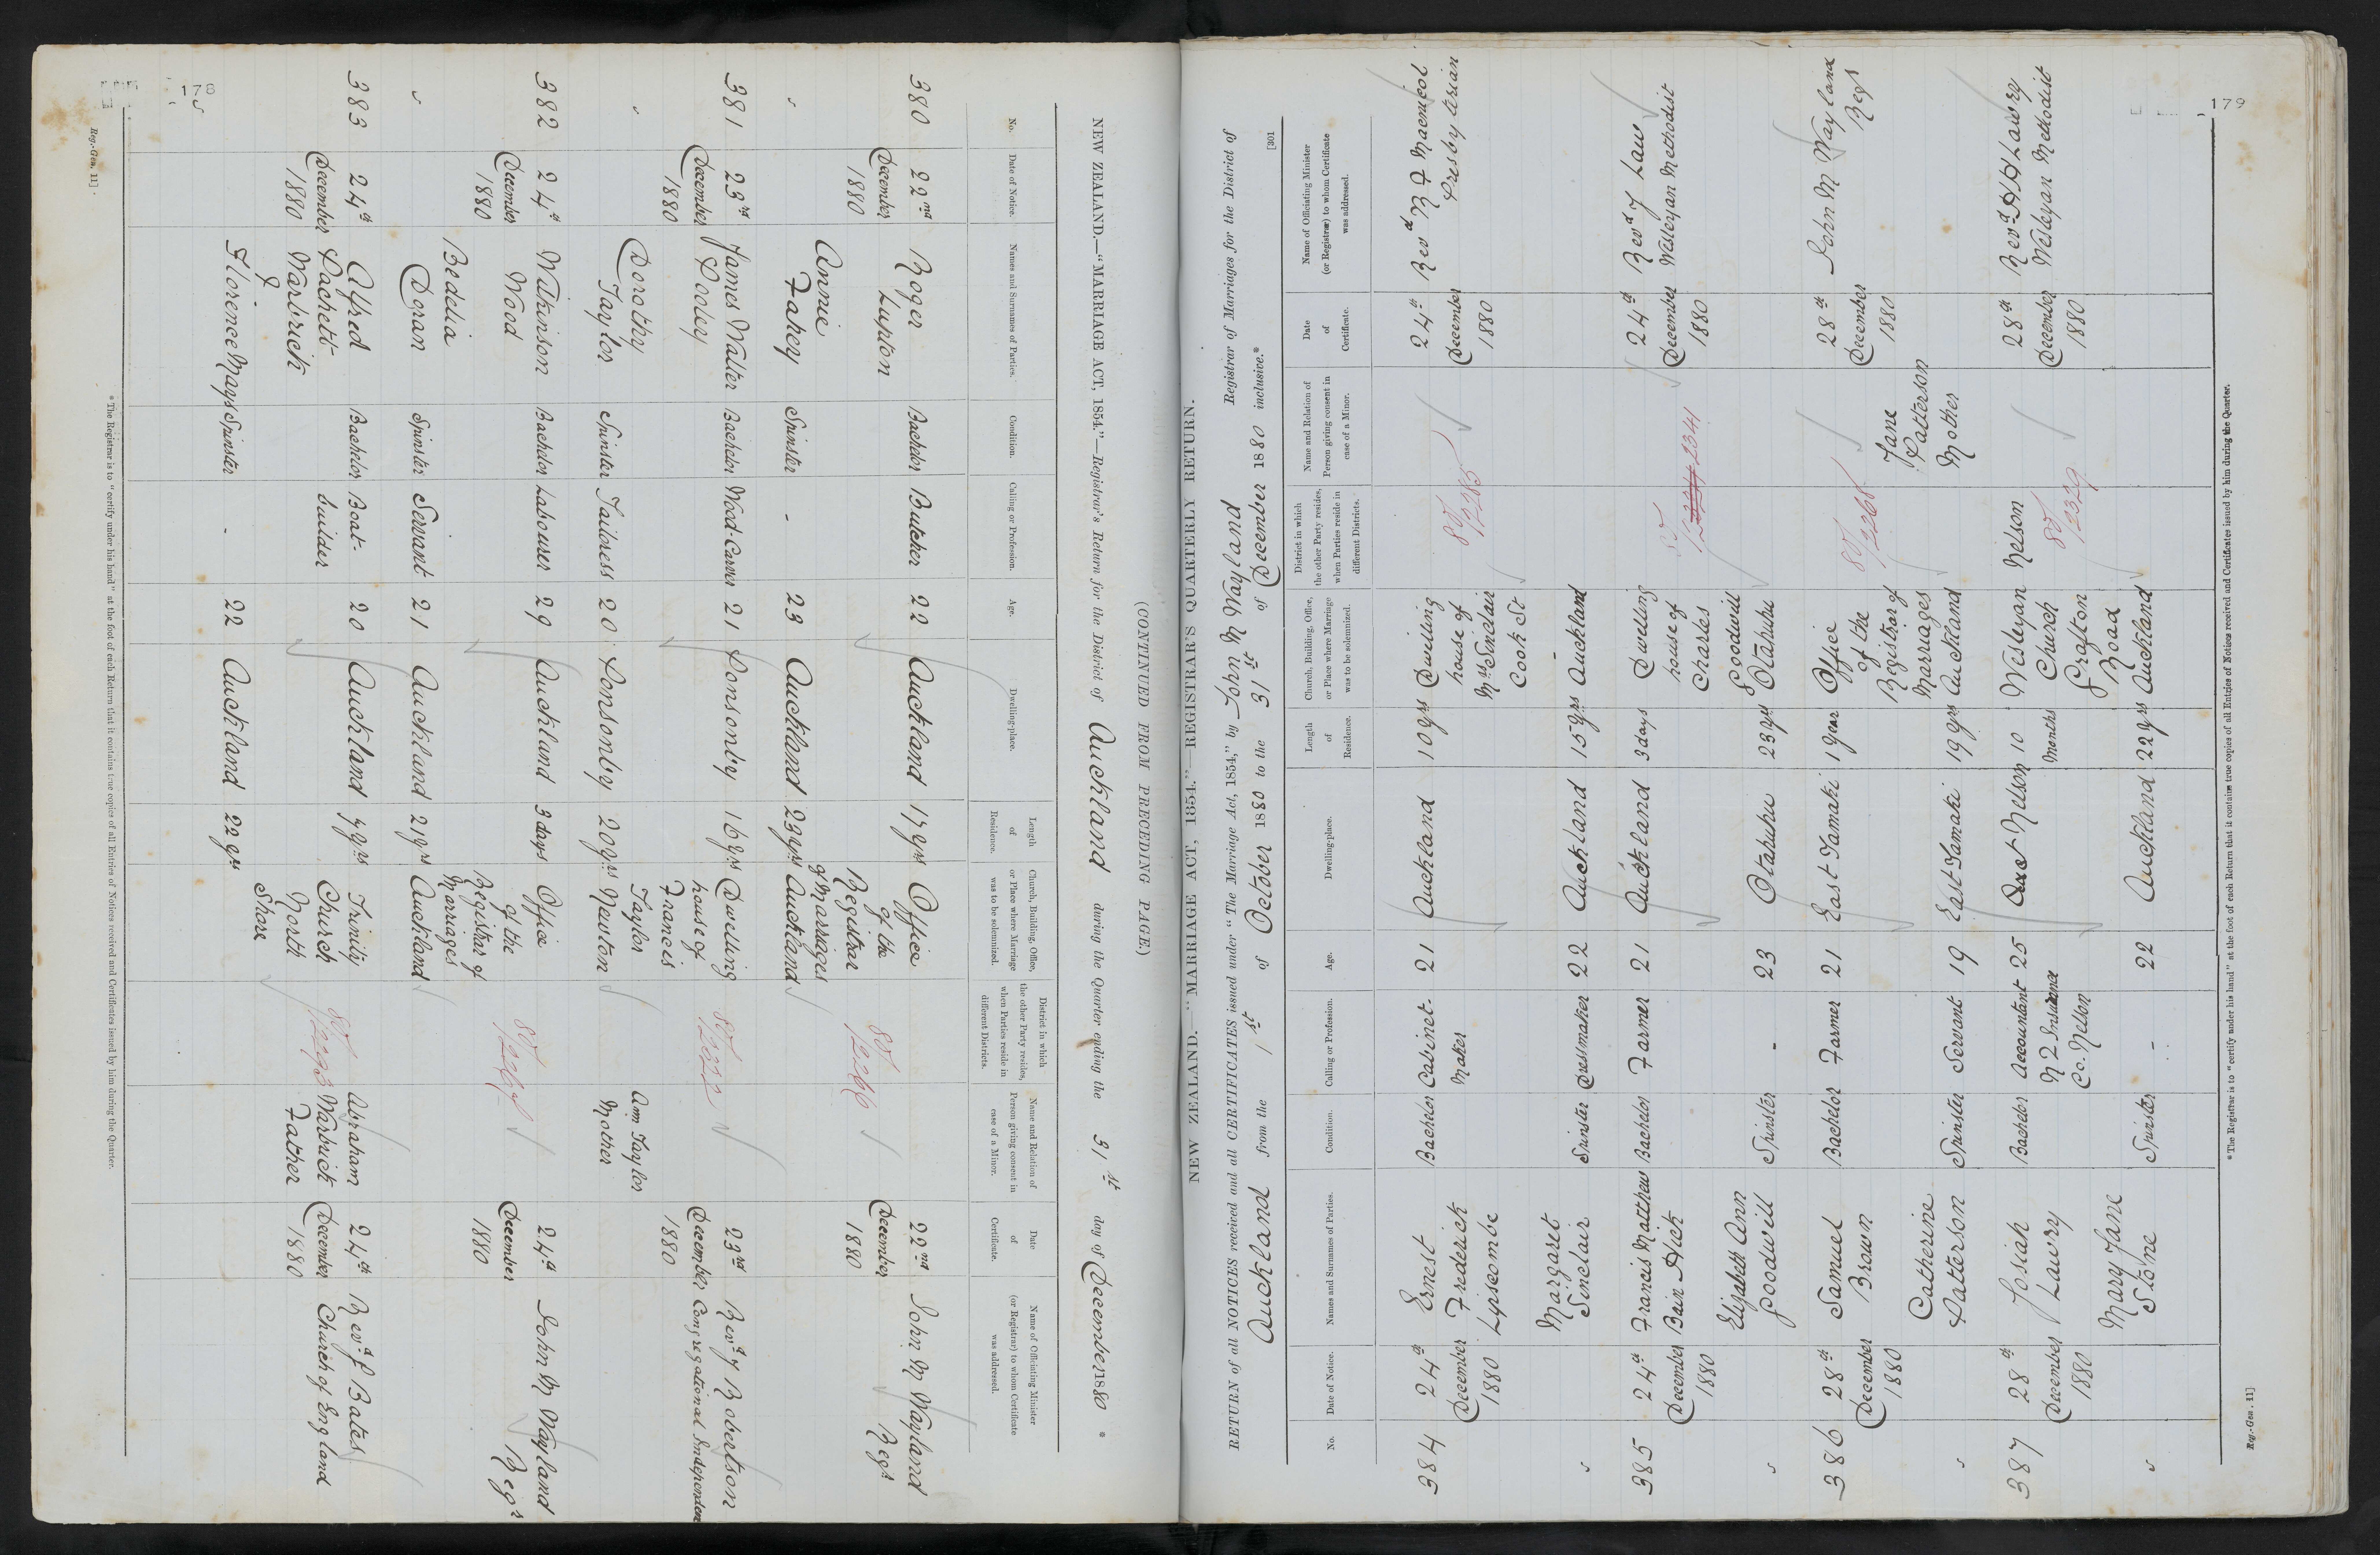 178
(CONTINUED FROM PRECEDING PAGE.)
NEW ZEALAND.—"MARRIAGE ACT, 1854."—Registrar's Return for the District of Auckland during the Quarter ending the 31st day of December 1880 *
No. Date of Notice. Names and Surnames of Parties. Condition. Calling or Profession. Age. Dwelling-place. Length of Residence. Church, Building, Office, or Place where Marriage was to be solemnized. District in which the other Party resides, when Parties reside in different Districts. Name and Relation of Person giving consent in case of a Minor. Date of Certificate. Name of Officiating Minister (or Registrar) to whom Certificate was addressed.
380 22nd Roger Bachelor Butcher 22 Auckland 17 yrs Office 22nd John M Wayland
December Lupton of the 80/2266 December Regr
1880 Registrar 1880
Annie of Marriages
" Fahey Spinster - 23 Auckland 23 yrs Auckland
381 23rd James Walter Bachelor Wood-Carver 21 Ponsonby 16 yrs Dwelling 23rd Revd J Robertson
December Pooley house of 80/2322 December Congregational Independent
1880 Francis 1880
Dorothy Taylor Ann Taylor
" Taylor Spinster Tailoress 20 Ponsonby 20 yrs Newton Mother
382 24th Wilkinson Bachelor Labourer 29 Auckland 3 days Office 24th John M Wayland
December Wood of the 80/2267 December Regr
1880 Registrar of 1880
Bedelia Marriages
" Doran Spinster Servant 21 Auckland 21 yrs Auckland
383 24th Alfred Bachelor Boat- 20 Auckland 7 yrs Trinity Abraham 24th Revd J Bates
December Pachett builder Church 80/2293 Warbrick December Church of England
1880 Warbrick North Father 1880
& Shore
" Florence Mays Spinster - 22 Auckland 22 yrs
* The Registrar is to "certify under his hand" at the foot of each Return that it contains true copies of all Entries of Notices received and Certificates issued by him during the Quarter.
Reg.-Gen. 11].
179
[301
NEW ZEALAND.—"MARRIAGE ACT, 1854."—REGISTRAR'S QUARTERLY RETURN.
RETURN of all NOTICES received and all CERTIFICATES issued under "The Marriage Act, 1854," by John M Wayland Registrar of Marriages for the District of
Auckland from the 1st of October 1880 to the 31st of December 1880 inclusive.*
No. Date of Notice. Names and Surnames of Parties. Condition. Calling or Profession. Age. Dwelling-place. Length of Residence. Church, Building, Office, or Place where Marriage was to be solemnized. District in which the other Party resides, when Parties reside in different Districts. Name and Relation of Person giving consent in case of a Minor. Date of Certificate. Name of Officiating Minister (or Registrar) to whom Certificate was addressed.
384 24th Ernest Bachelor Cabinet- 21 Auckland 10 yrs Dwelling 24th Revd R F Macnicol
December Frederick Maker house of 80/2285 December Presbyterian
1880 Lipscombe Mrs Sinclair 1880
Margaret Cook St
" Sinclair Spinster Dressmaker 22 Auckland 15 yrs Auckland
385 24th Francis Matthew Bachelor Farmer 21 Auckland 3 days Dwelling 24th Revd J Law
December Bain Hick house of 80/2341 December Wesleyan Methodist
1880 Charles 1880
Elizabeth Ann Goodwill
" Goodwill Spinster - 23 Otahuhu 23 yrs Otahuhu
386 28th Samuel Bachelor Farmer 21 East Tamaki 1 year Office 28th John M Wayland
December Brown of the 80/2268 December Regr
1880 Registrar of Jane 1880
Catherine Marriages Patterson
" Patterson Spinster Servant 19 East Tamaki 19 yrs Auckland Mother
387 28th Josiah Bachelor Accountant 25 Nelson 10 Wesleyan Nelson 28th Revd H H Lawry
December Lawry N Z Insurance Months Church 80/2329 December Wesleyan Methodist
1880 Co. Nelson Grafton 1880
Mary Jane Road
" Stone Spinster - 22 Auckland 22 yrs Auckland
* The Registrar is to "certify under his hand" at the foot of each Return that it contains true copies of all Entries of Notices received and Certificates issued by him during the Quarter.
Reg.-Gen. 11]